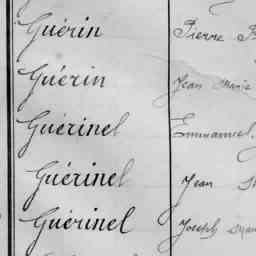 Guérin Pierre
Guérin Jean Marie
Guérinel Emmanuel,
Guérinel Jean
Guérinel Joseph